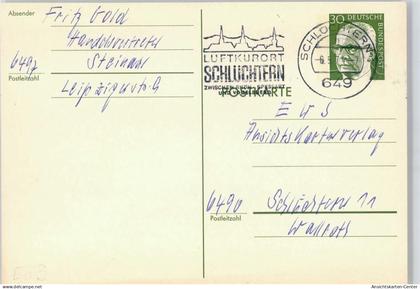 Absender
Fritz Gold
Handelsvertreter
6497 Steinau
Postleitzahl
Leipzigerstr. 6
LUFTKURORT
SCHLÜCHTERN
ZWISCHEN RHÖN - SPESSART
UND VOGELSBERG
SCHLÜCHTERN 1
649
30
DEUTSCHE
BUNDESPOST
POSTKARTE
EWS
Ansichtskartenverlag
6490 Schlüchtern 11
Postleitzahl
Wallroth
www.ansichtskarten-center.de
Ansichtskarten-Center